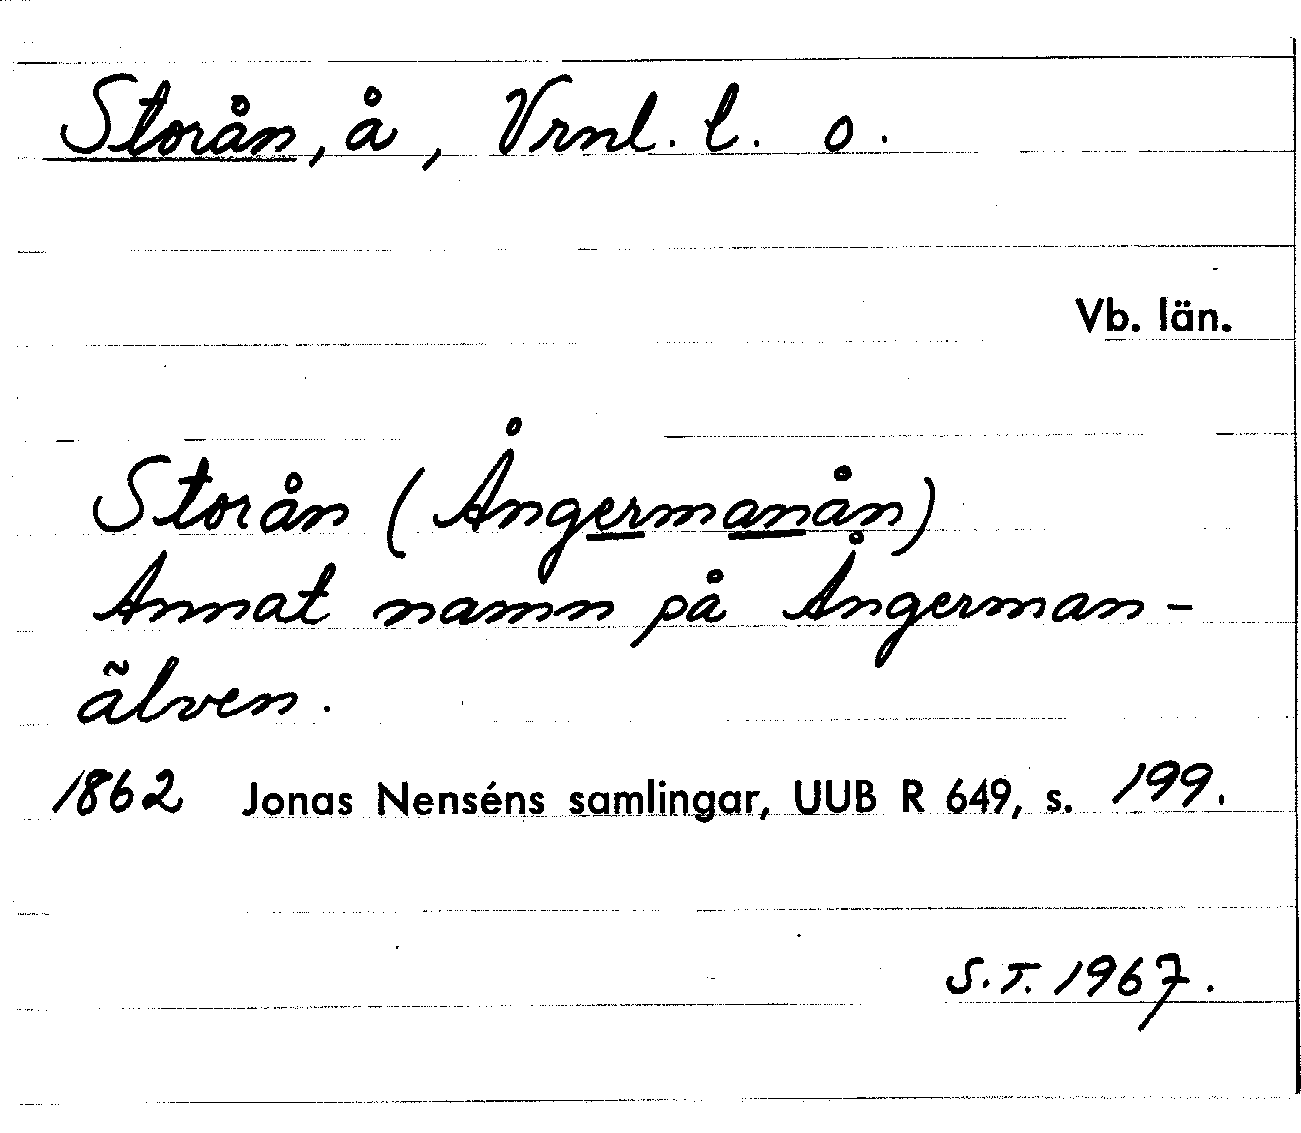 Storån, å, Vrml. l. o.
Vb. län.
Storån (Ångermanån)
Annat namn på Ångerman-
älven.
1862 Jonas Nenséns samlingar, UUB R 649, s. 199.
S.T. 1967.